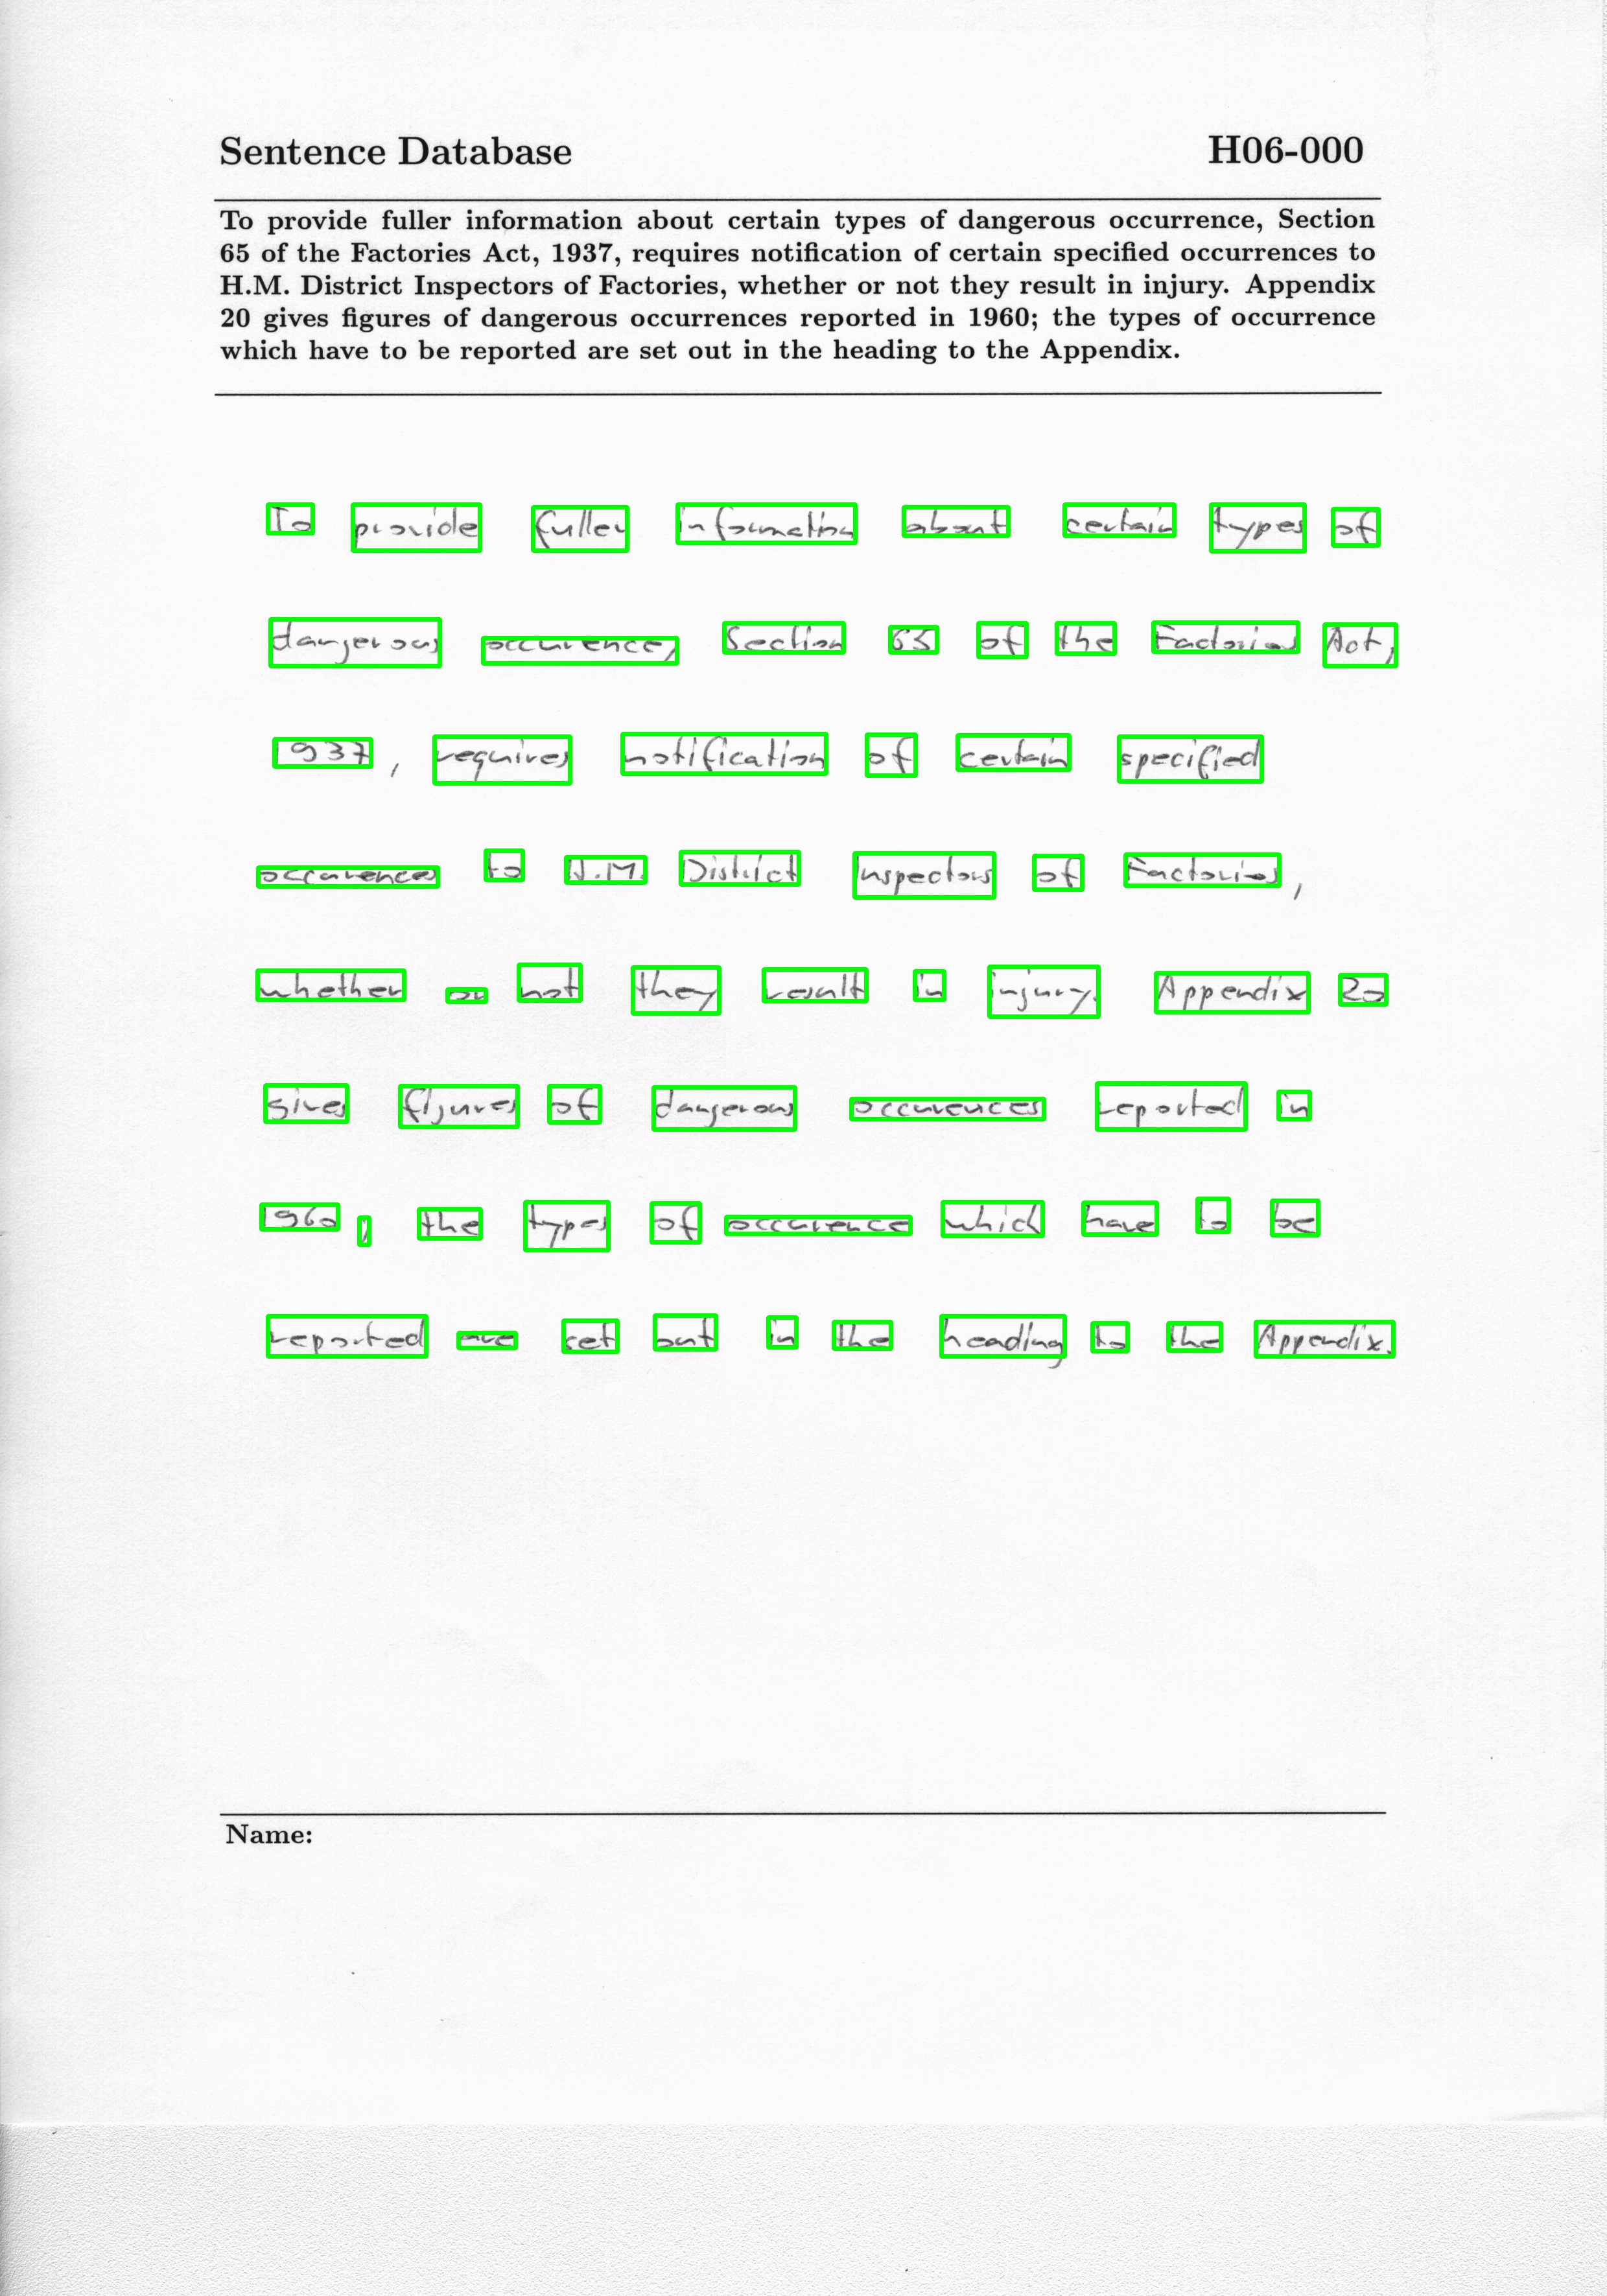 Sentence Database H06-000
To provide fuller information about certain types of dangerous occurrence, Section
65 of the Factories Act, 1937, requires notification of certain specified occurrences to
H.M. District Inspectors of Factories, whether or not they result in injury. Appendix
20 gives figures of dangerous occurrences reported in 1960; the types of occurrence
which have to be reported are set out in the heading to the Appendix.
To provide fuller information about certain types of
dangerous occurence, Section 65 of the Factories Act,
1937, requires notification of certain specified
occurences to H.M. District Inspectors of Factories,
whether or not they result in injury. Appendix 20
gives figures of dangerous occurences reported in
1960, the types of occurence which have to be
reported are set out in the heading to the Appendix.
Name: